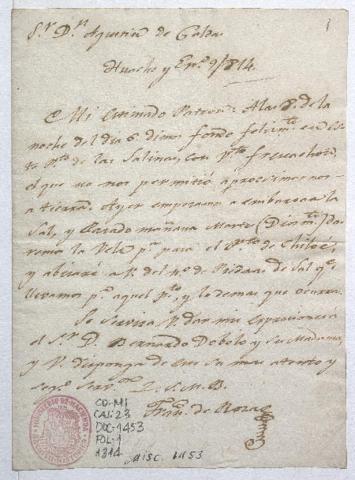 S.r D.n Agustin de
Huacho y En.o 9/814.
Mi Estimado Patron: A las 8. de la
noche del dia 6 dimos fondo felizm.te en es-
te P.to de las Salinas, con v.to frescachon
el que no nos permitió aproccimarnos
a tierra. Ayer empezamos a embarcar la
Sal, y mañana Martes (Dios m.te) da-
remos la Vela p.a para el P.to de Chiloé;
y abisaré a V. del n.o de Piedras de Sal q.e
llevamos p.a aquel p.to, y lo demas que ocurra.
Se Servira V. dar mis Expresiones a
el S.or D. Bernardo y Su Madama,
y V. disponga de este Su mas atento y
seg.o Serv.or Q. S. M. B.
Fran.co de Rosas
CO-MI
CAJ: 23
DOC-1453
FOL-1
1814
MISC. 1453